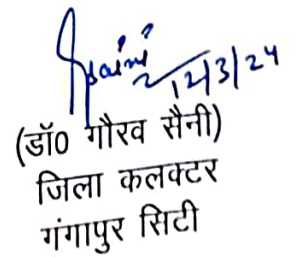 Gsaini
12/3/24
(डॉ0 गौरव सैनी)
जिला कलक्टर
गंगापुर सिटी